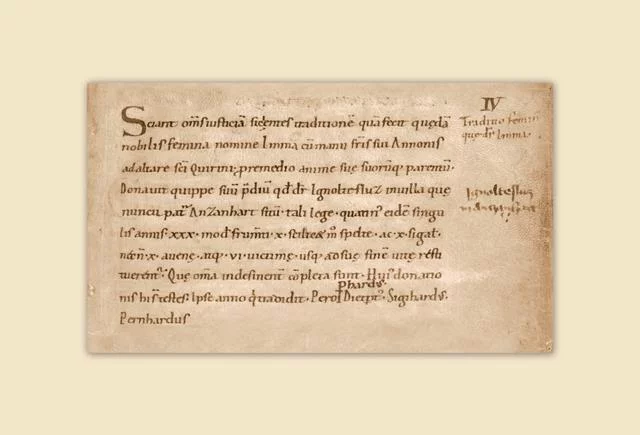 IV
Sciant om̄s iusticiā sigentes traditionē quā fecit quędā
nobilis femina nomine Imma cū manu fr̄is sui Annonis
ad altare sc̄i Quirini, p remedio anime suę suorūq; parentū.
Donavit quippe suū p̄diū qd̄ dr̄ Ignoltesluz in villa quę
nuncupat᷑ Anzanhart sitū tali lege, quatin᷑ eidē singu
lis annis · xxx · mod
ac · x · sigal·
x · avenę, · vi · victimę, usq; ad suę finē vitę resti
tuerent᷑. Quę om̄ia indesinent᷑ cōpleta sunt. Hui᷑ donatio
nis hi s̄t testes. Ipse anno q̇ tradidit. Perolt Sigihardus.
Phardus
Pernhardus
Traditio femin
quę dr̄ Imma.
Ignoltesluz